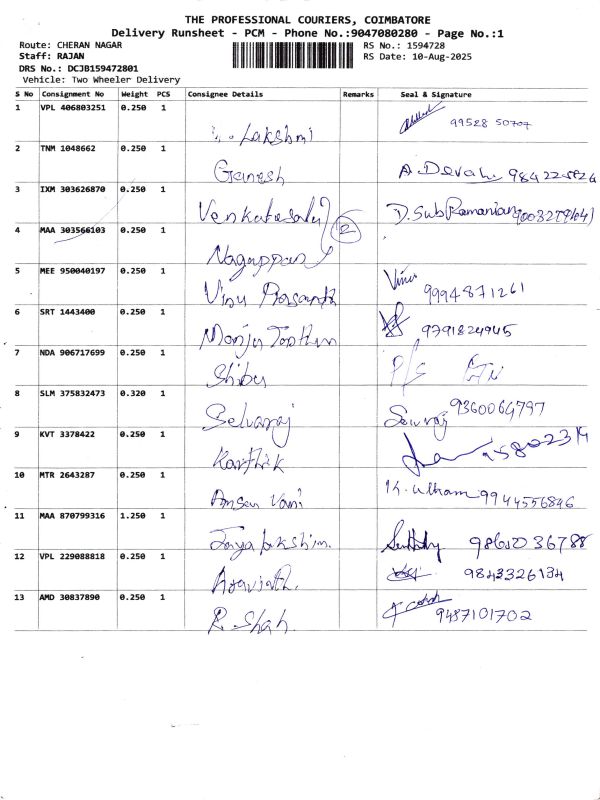 THE PROFESSIONAL COURIERS, COIMBATORE
Delivery Runsheet - PCM - Phone No.:9047080280 - Page No.:1
Route: CHERAN NAGAR RS No.: 1594728
Staff: RAJAN RS Date: 10-Aug-2025
DRS No.: DCJB159472801
Vehicle: Two Wheeler Delivery
S No Consignment No Weight PCS Consignee Details Remarks Seal & Signature
1 VPL 406803251 0.250 1
Lakshmi 99528 50707
2 TNM 1048662 0.250 1
Ganesh A. Devaki
3 IXM 303626870 0.250 1
Venkatesalu D. SubRamanian
4 MAA 303566103 0.250 1 2
Nagappan
5 MEE 950040197 0.250 1
Vinu Prasanth Vinu 9994871261
6 SRT 1443400 0.250 1
Manju 9791824945
7 NDA 906717699 0.250 1
Shibu P/S
8 SLM 375832473 0.320 1
Selvaraj 9360064797
9 KVT 3378422 0.250 1
Karthik
10 MTR 2643287 0.250 1
Vani K. 9944556846
11 MAA 870799316 1.250 1
Jaya lakshim.
12 VPL 229088818 0.250 1
Aravinth. 9843326134
13 AMD 30837890 0.250 1
R. Shah. 9487101702